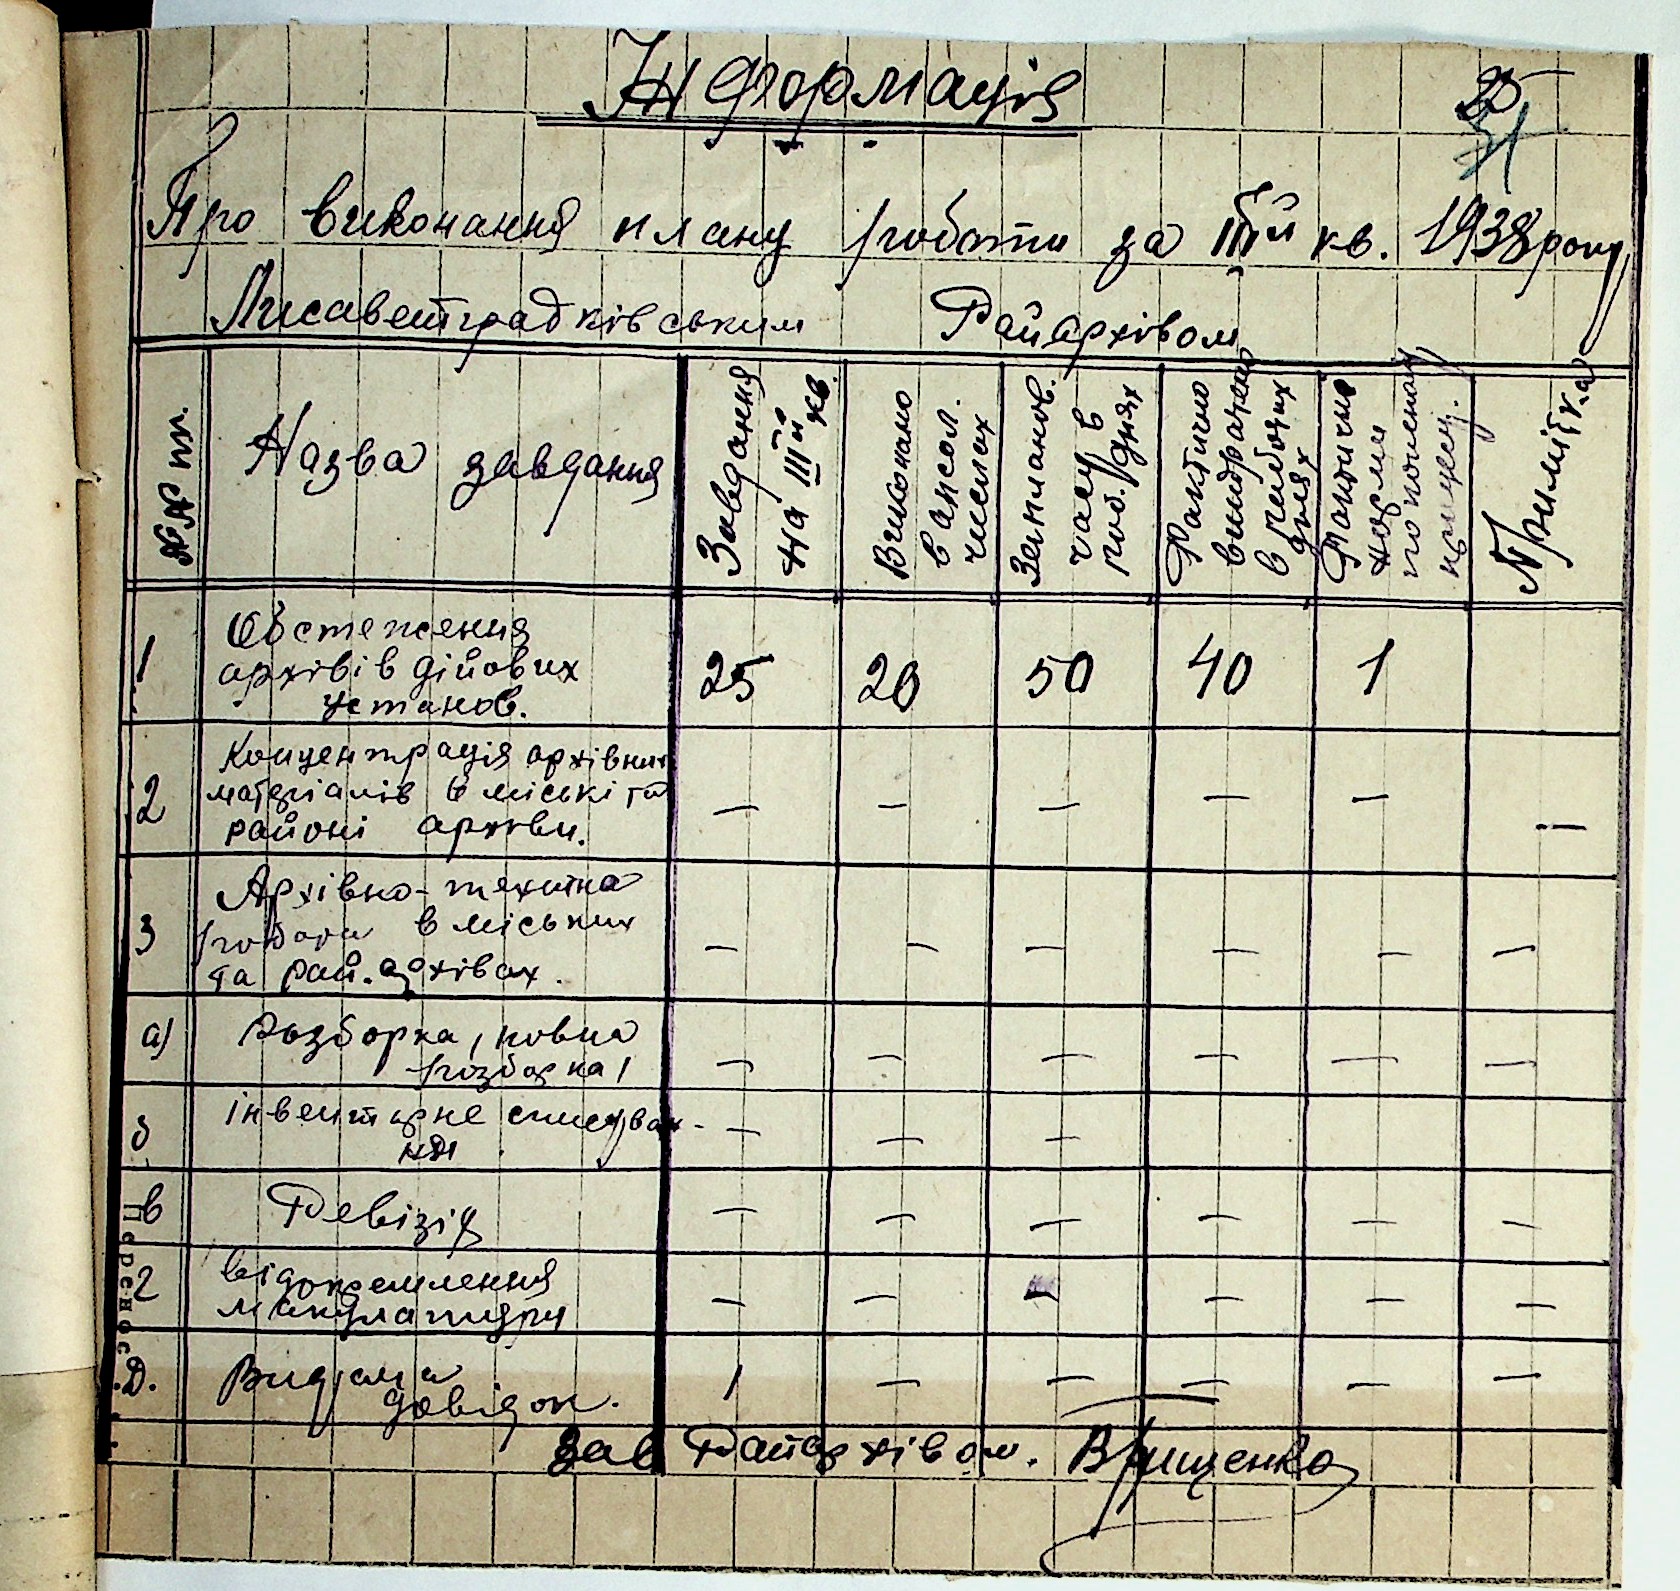 Інформація
25
31
Про виконання плану роботи за ІІІй кв. 1938 року
Лисаветградківським Райархівом
№№ пп.
Назва завдання
Завдання
на ІІІй кв.
Виконано
в абсол.
числах
Заплнанов.
часу в
роб. днях
Фактично
витрачено
в робочих
днях
Фактично
норми
Примітка
1
Обстеження
архівів дійових
установ.
25 20 50 40 1
2
Концентрація архівних
матеріалів в міські та
районі архиви.
— — — — — —
3
Архівно-технічна
робота в міських
та рай. архівах.
— — — — — —
а)
Розборка, повна
розборка,
— — — — — —
б
інвентарне списуван-
ня
— — —
в
Ревізія
— — — — — —
г
відокремлення
макулатури
— — — — — —
Д.
Видача
довідок.
1 — — — — —
Перенос
Зав Райархівом. Врищенко